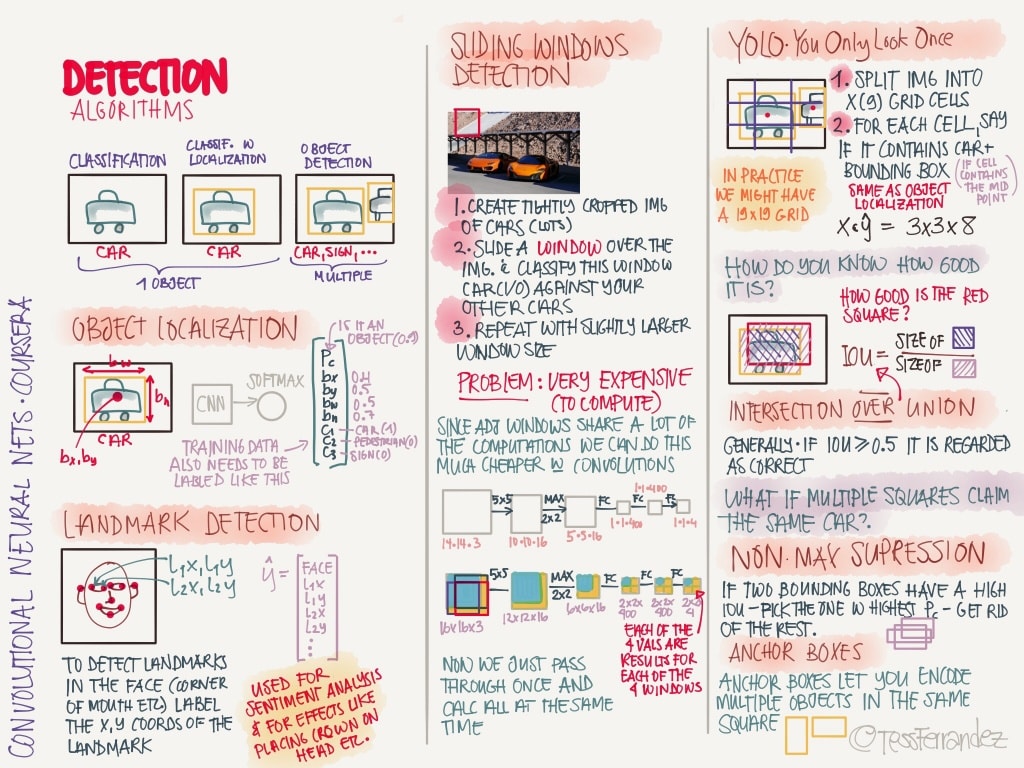 CONVOLUTIONAL NEURAL NETS · COURSERA
DETECTION
ALGORITHMS
CLASSIFICATION
CLASSIF. W
LOCALIZATION
OBJECT
DETECTION
CAR
CAR
CAR, SIGN, ...
1 OBJECT
MULTIPLE
OBJECT LOCALIZATION
IS IT AN
OBJECT (0.9)
bw
bh
CAR
bx, by
CNN
SOFTMAX
Pc
bx 0.4
by 0.5
bw 0.5
bh 0.7
C1 CAR (1)
C2 PEDESTRIAN (0)
C3 SIGN (0)
TRAINING DATA
ALSO NEEDS TO BE
LABLED LIKE THIS
LANDMARK DETECTION
L1X, L1Y
L2X, L2Y
ŷ =
FACE
L1X
L1Y
L2X
L2Y
⋮
TO DETECT LANDMARKS
IN THE FACE (CORNER
OF MOUTH ETC) LABEL
THE X,Y COORDS OF THE
LANDMARK
USED FOR
SENTIMENT ANALYSIS
& FOR EFFECTS LIKE
PLACING CROWN ON
HEAD ETC.
SLIDING WINDOWS
DETECTION
1. CREATE TIGHTLY CROPPED IMG
OF CARS (LOTS)
2. SLIDE A WINDOW OVER THE
IMG. & CLASSIFY THIS WINDOW
CAR (1/0) AGAINST YOUR
OTHER CARS
3. REPEAT WITH SLIGHTLY LARGER
WINDOW SIZE
PROBLEM: VERY EXPENSIVE
(TO COMPUTE)
SINCE ADJ WINDOWS SHARE A LOT OF
THE COMPUTATIONS WE CAN DO THIS
MUCH CHEAPER W CONVOLUTIONS
5x5 MAX 2x2 FC FC FC
1·1·400
14·14·3 10·10·16 5·5·16 1·1·400 1·1·4
5x5 MAX 2x2 FC FC FC
16x16x3 12x12x16 6x6x16 2x2x400 2x2x400 2x2x4
EACH OF THE
4 VALS ARE
RESULTS FOR
EACH OF THE
4 WINDOWS
NOW WE JUST PASS
THROUGH ONCE AND
CALC ALL AT THE SAME
TIME
YOLO · You Only Look Once
1. SPLIT IMG INTO
X(9) GRID CELLS
2. FOR EACH CELL, SAY
IF IT CONTAINS CAR+
BOUNDING BOX
(IF CELL
CONTAINS
THE MID
POINT)
SAME AS OBJECT
LOCALIZATION
IN PRACTICE
WE MIGHT HAVE
A 19x19 GRID
X & ŷ = 3x3x8
HOW DO YOU KNOW HOW GOOD
IT IS?
HOW GOOD IS THE RED
SQUARE?
IOU = SIZE OF
SIZE OF
INTERSECTION OVER UNION
GENERALLY · IF IOU ≥ 0.5 IT IS REGARDED
AS CORRECT
WHAT IF MULTIPLE SQUARES CLAIM
THE SAME CAR?
NON·MAX SUPRESSION
IF TWO BOUNDING BOXES HAVE A HIGH
IOU – PICK THE ONE W HIGHEST Pc – GET RID
OF THE REST.
ANCHOR BOXES
ANCHOR BOXES LET YOU ENCODE
MULTIPLE OBJECTS IN THE SAME
SQUARE
©TessFerrandez